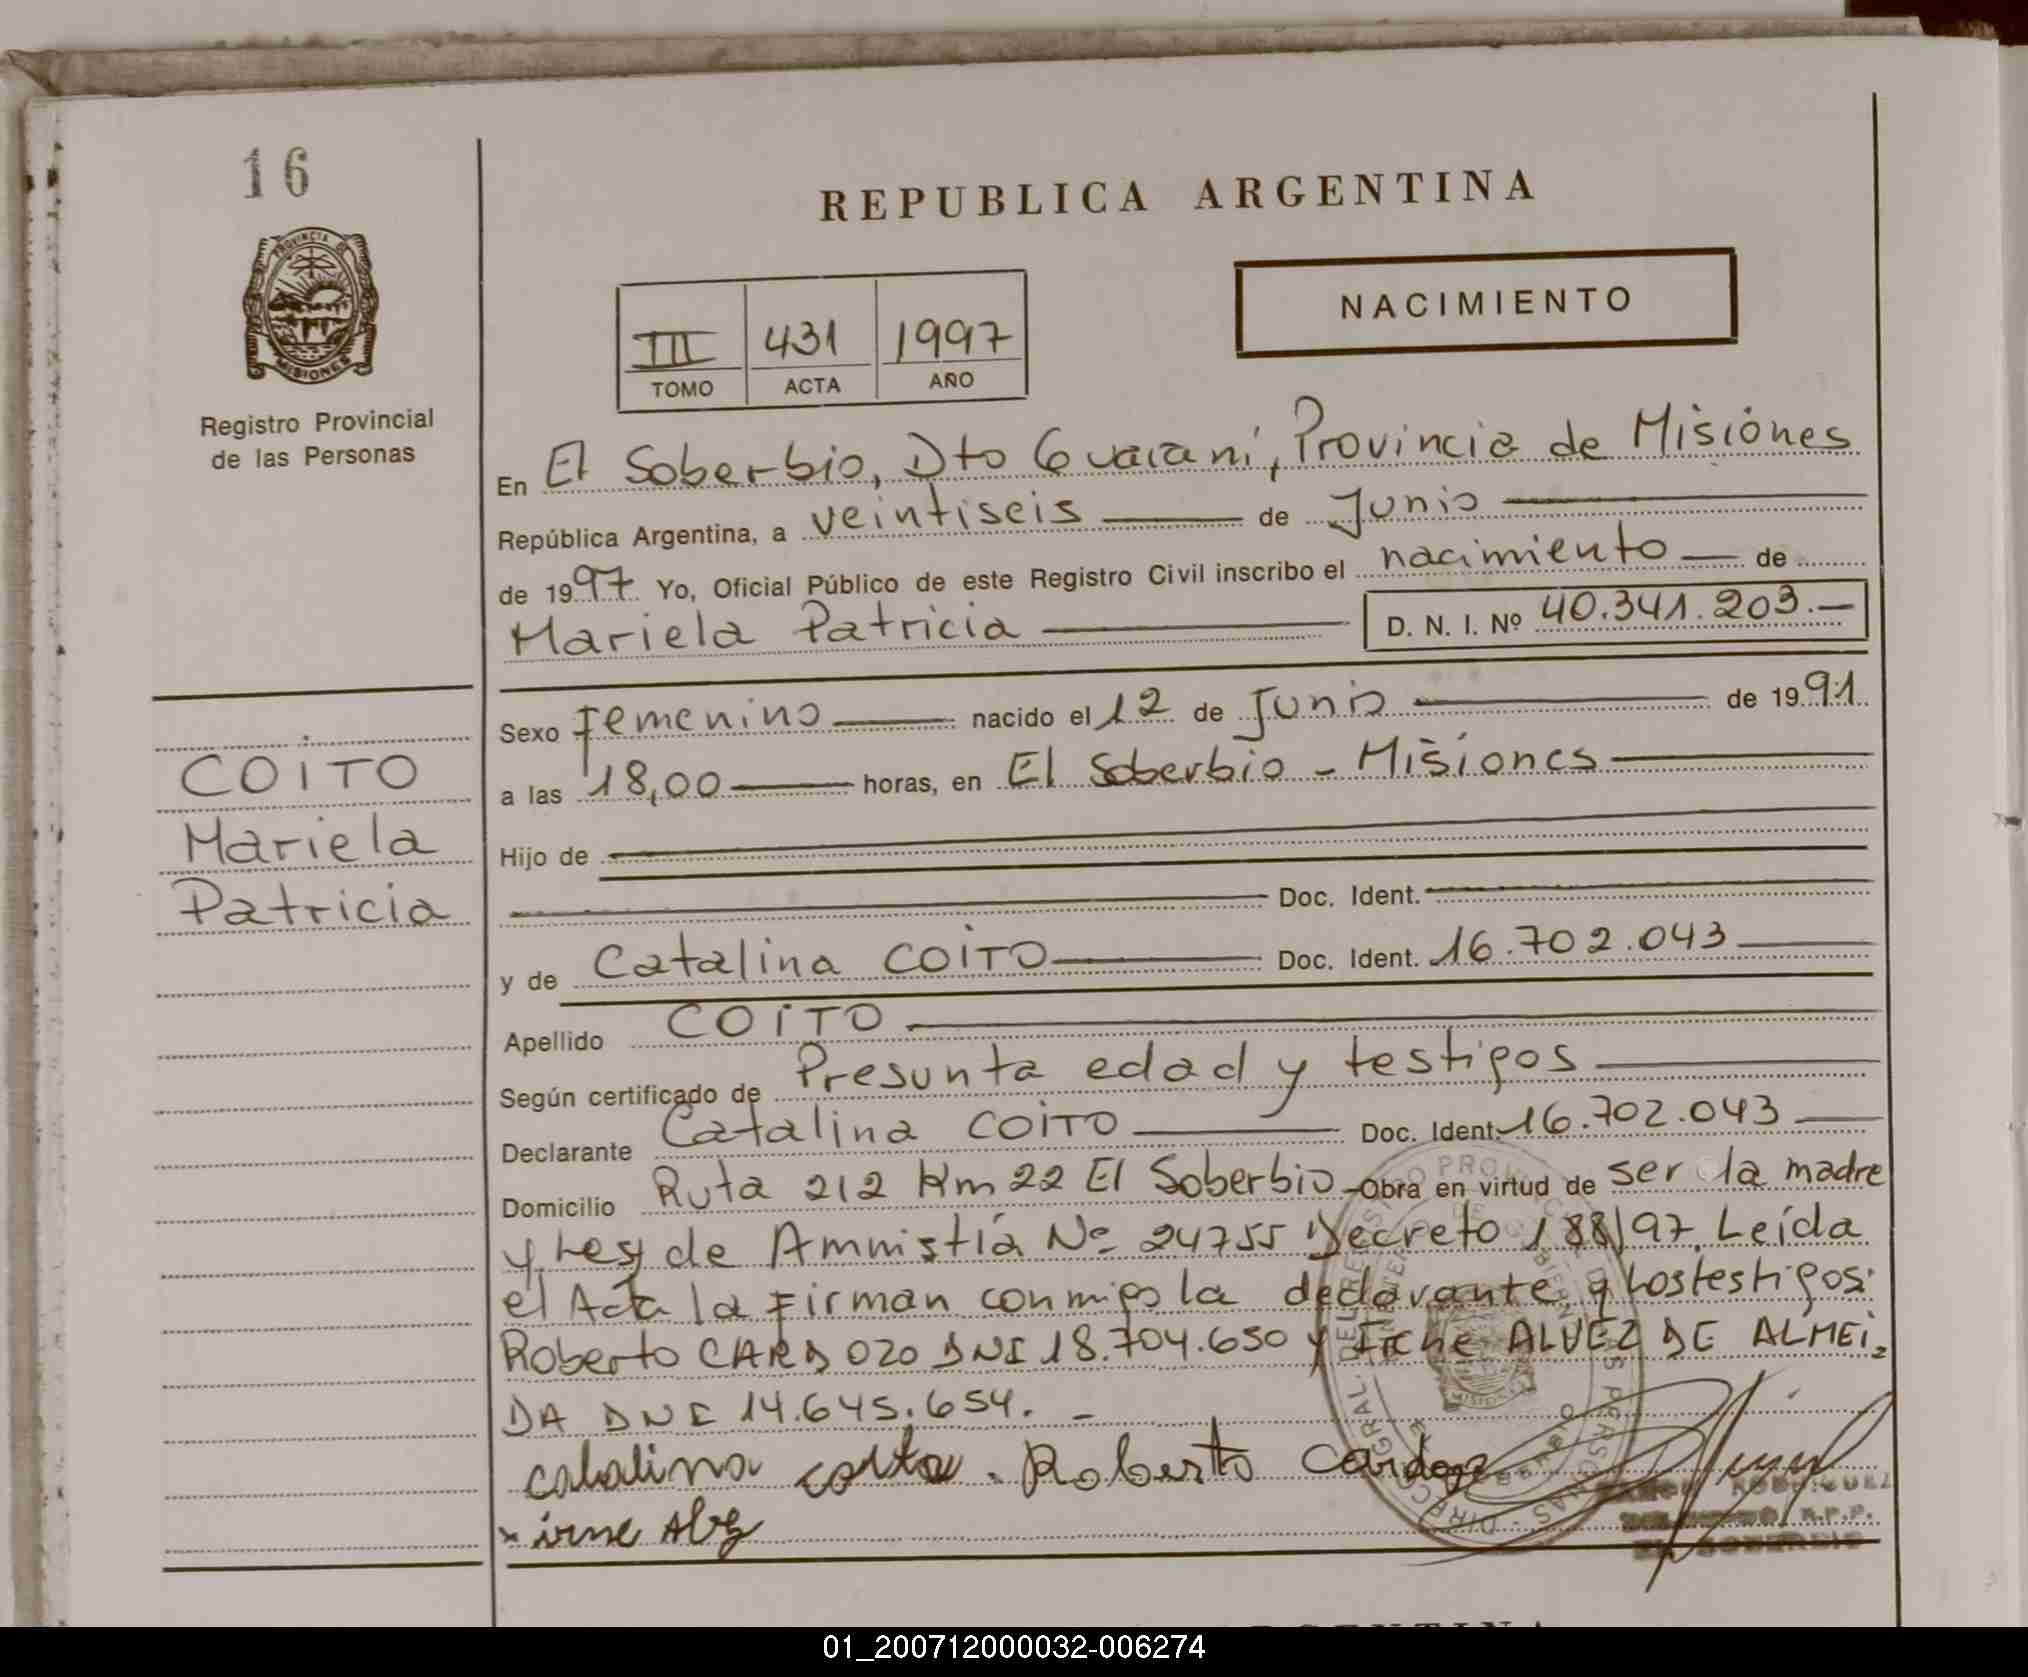 16
REPUBLICA ARGENTINA
PROVINCIA DE
MISIONES
Registro Provincial
de las Personas
NACIMIENTO
III 431 1997
TOMO ACTA AÑO
En El Soberbio, Dto Guaraní, Provincia de Misiones
República Argentina, a veintiseis de Junio
de 1997 Yo, Oficial Público de este Registro Civil inscribo el nacimiento de
Mariela Patricia D. N. I. Nº 40.341.203.-
COITO
Mariela
Patricia
Sexo Femenino nacido el 12 de Junio de 1991
a las 18,00 horas, en El Soberbio - Misiones
Hijo de
Doc. Ident.
y de Catalina COITO Doc. Ident. 16.702.043
Apellido COITO
Según certificado de Presunta edad y testigos
Declarante Catalina COITO Doc. Ident. 16.702.043
Domicilio Ruta 212 Km 22 El Soberbio - Obra en virtud de ser la madre
y Ley de Amnistía Nº 24755 Decreto 188/97. Leída
el Acta la Firman conmigo la declarante y los testigos:
Roberto CARDOZO DNI 18.704.650 y Irene ALVEZ DE ALMEI-
DA DNI 14.645.654. -
catalina coito. Roberto Cardozo
RODRIGUEZ
R.P.P.
EL SOBERBIO
ARGENTINA
01_200712000032-006274